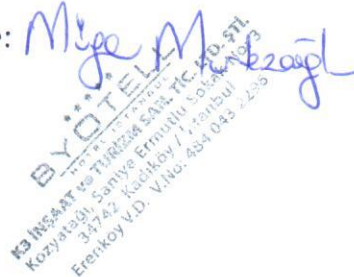 : Müge
BYOTELL
HOTEL ISTANBUL
K3 İNŞAAT ve TURİZM SAN. TİC. LTD. ŞTİ.
Kozyatağı, Saniye Ermutlu Sokak No:3
34742 Kadıköy / İstanbul
Erenköy V.D. V.No: 484 043 2296